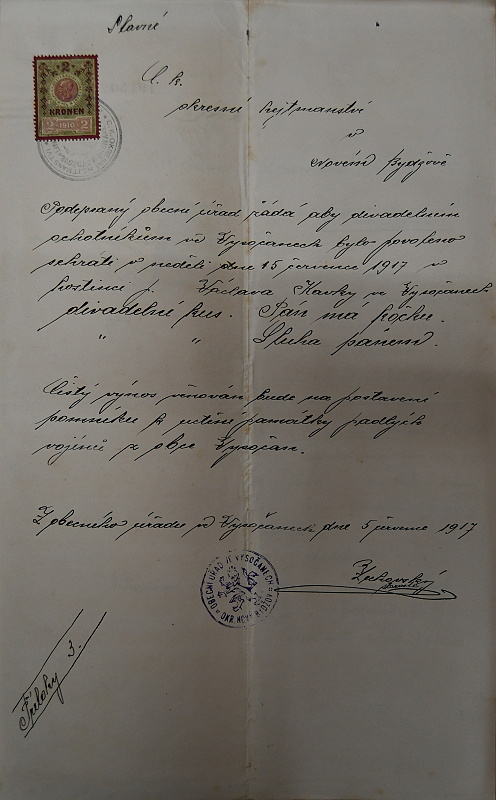 Slavné
2
KRONEN
2 1910 2
C. k.
okresní hejtmanství
v
Novém Bydžově
Podepsaný obecní úřad žádá aby divadelním
ochotníkům ve Vysočanech bylo povoleno
sehráti v neděli dne 15 července 1917 v
hostinci p. Václava Havky ve Vysočanech
divadelní kus. Pan má kočku.
" " Sluha pánem.
Čistý výnos věnován bude na postavení
pomníku k uctění památky padlých
vojínů z obce Vysočan.
Z obecního úřadu ve Vysočanech dne 5 července 1917
OBECNÍ ÚŘAD VE VYSOČANECH
OKR. NOVÝ BYDŽOV
Přílohy 3.